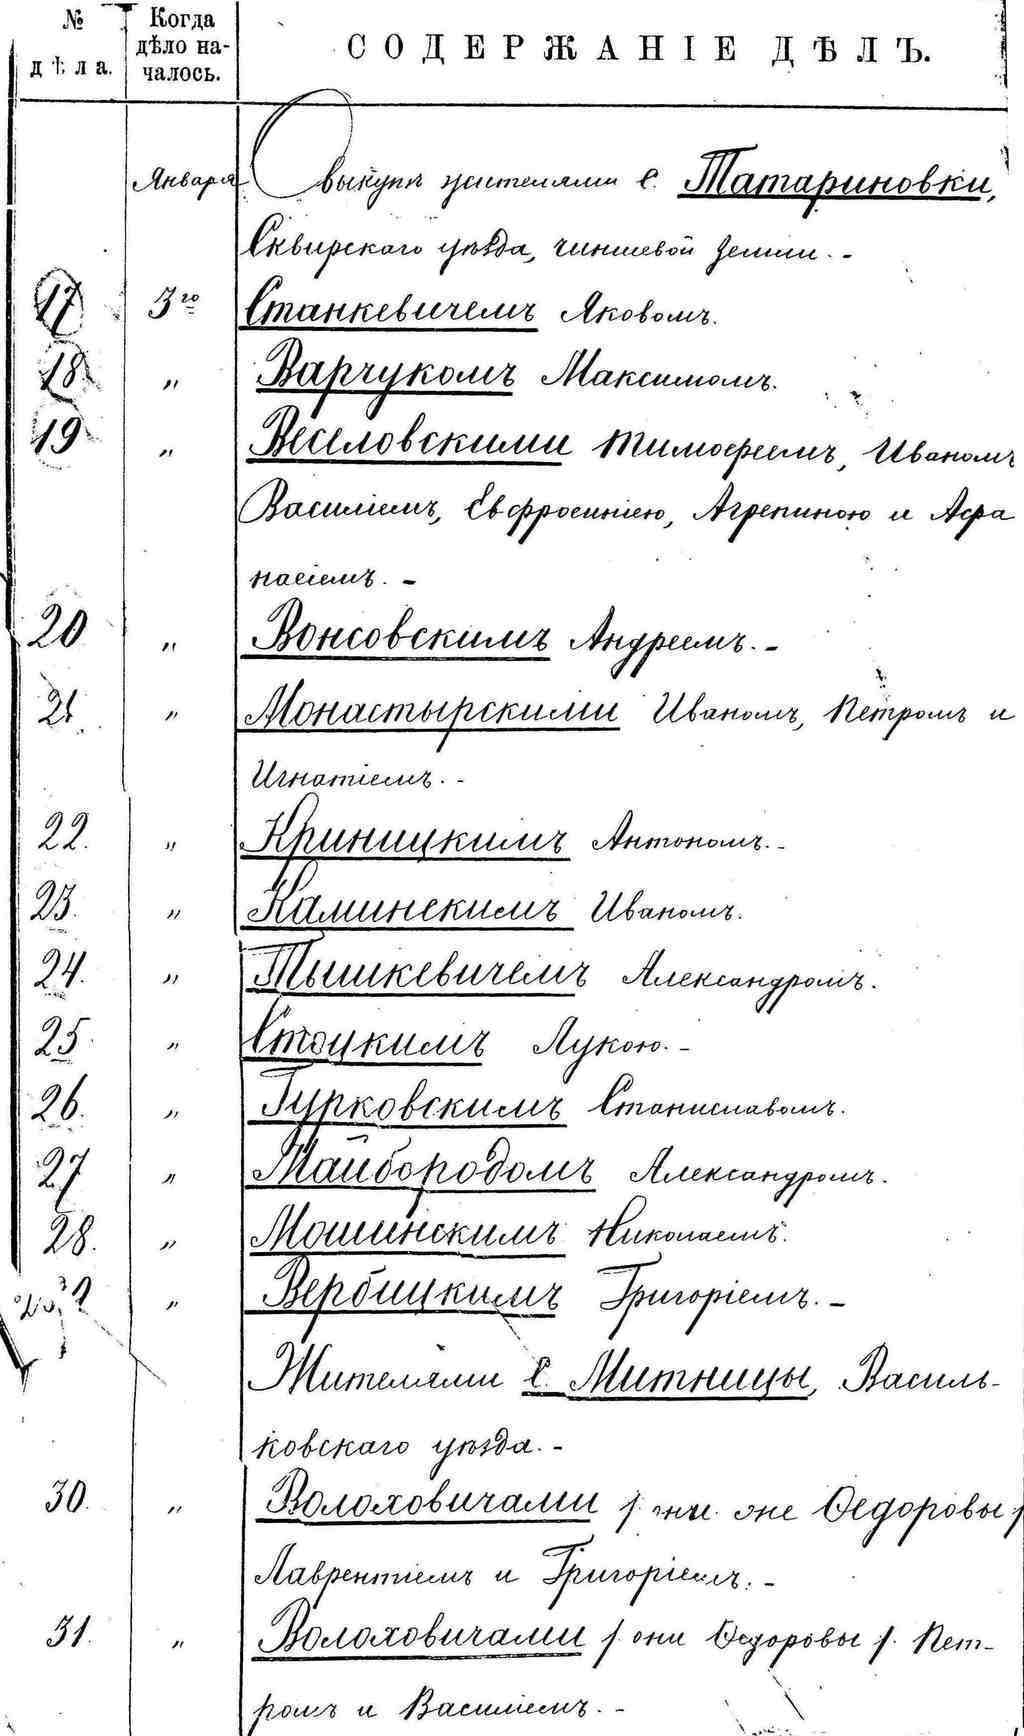 № дѣла.
Когда дѣло на-
чалось.
СОДЕРЖАНІЕ ДѢЛЪ.
Января О выкупѣ жителями с. Татариновки,
Сквирскаго уѣзда, чиншевой земли. -
17 3го Станкевичемъ Яковомъ.
18 " Варчукомъ Максимомъ.
19 " Веселовскими Тимофеемъ, Иваномъ
Василіемъ, Евфросиніею, Агрепиною и Афа
насіемъ. -
20 " Вонсовскимъ Андреемъ. -
21 " Монастырскими Иваномъ, Петромъ и
Игнатіемъ. -
22. " Криницкимъ Антономъ. -
23. " Каминскимъ Иваномъ.
24. " Тышкевичемъ Александромъ.
25 " Стоцкимъ Лукою. -
26. " Гурковскимъ Станиславомъ.
27 " Майбородомъ Александромъ.
28. " Мошинскимъ Николаемъ.
" Вербицкимъ Григоріемъ. -
Жителями с. Митницы, Василь-
ковскаго уѣзда. -
30. " Волоховичами же Федоровы
Лаврентіемъ и Григоріемъ. -
31. " Волоховичами / они Федоровы /. Пет-
ромъ и Василіемъ. -